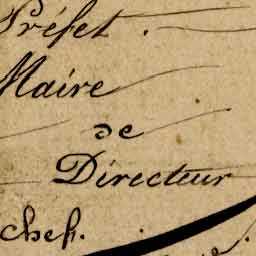 Préfet.
Maire
de
Directeur
chef.